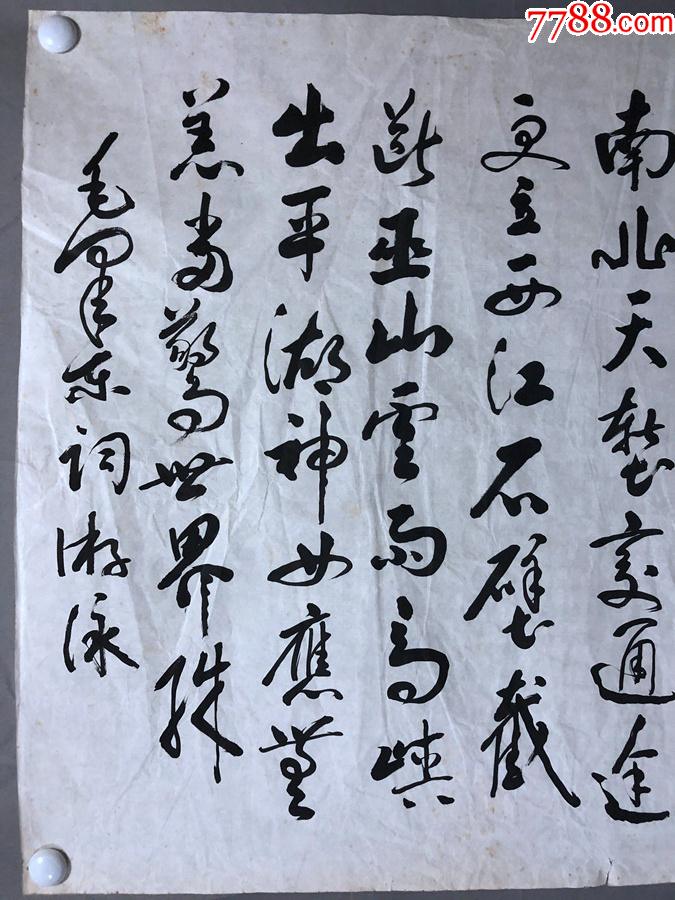 7788.com
南北天塹变通途
更立西江石壁截
断巫山雲雨高峽
出平湖神女應無
恙當驚世界殊
毛澤东词游泳